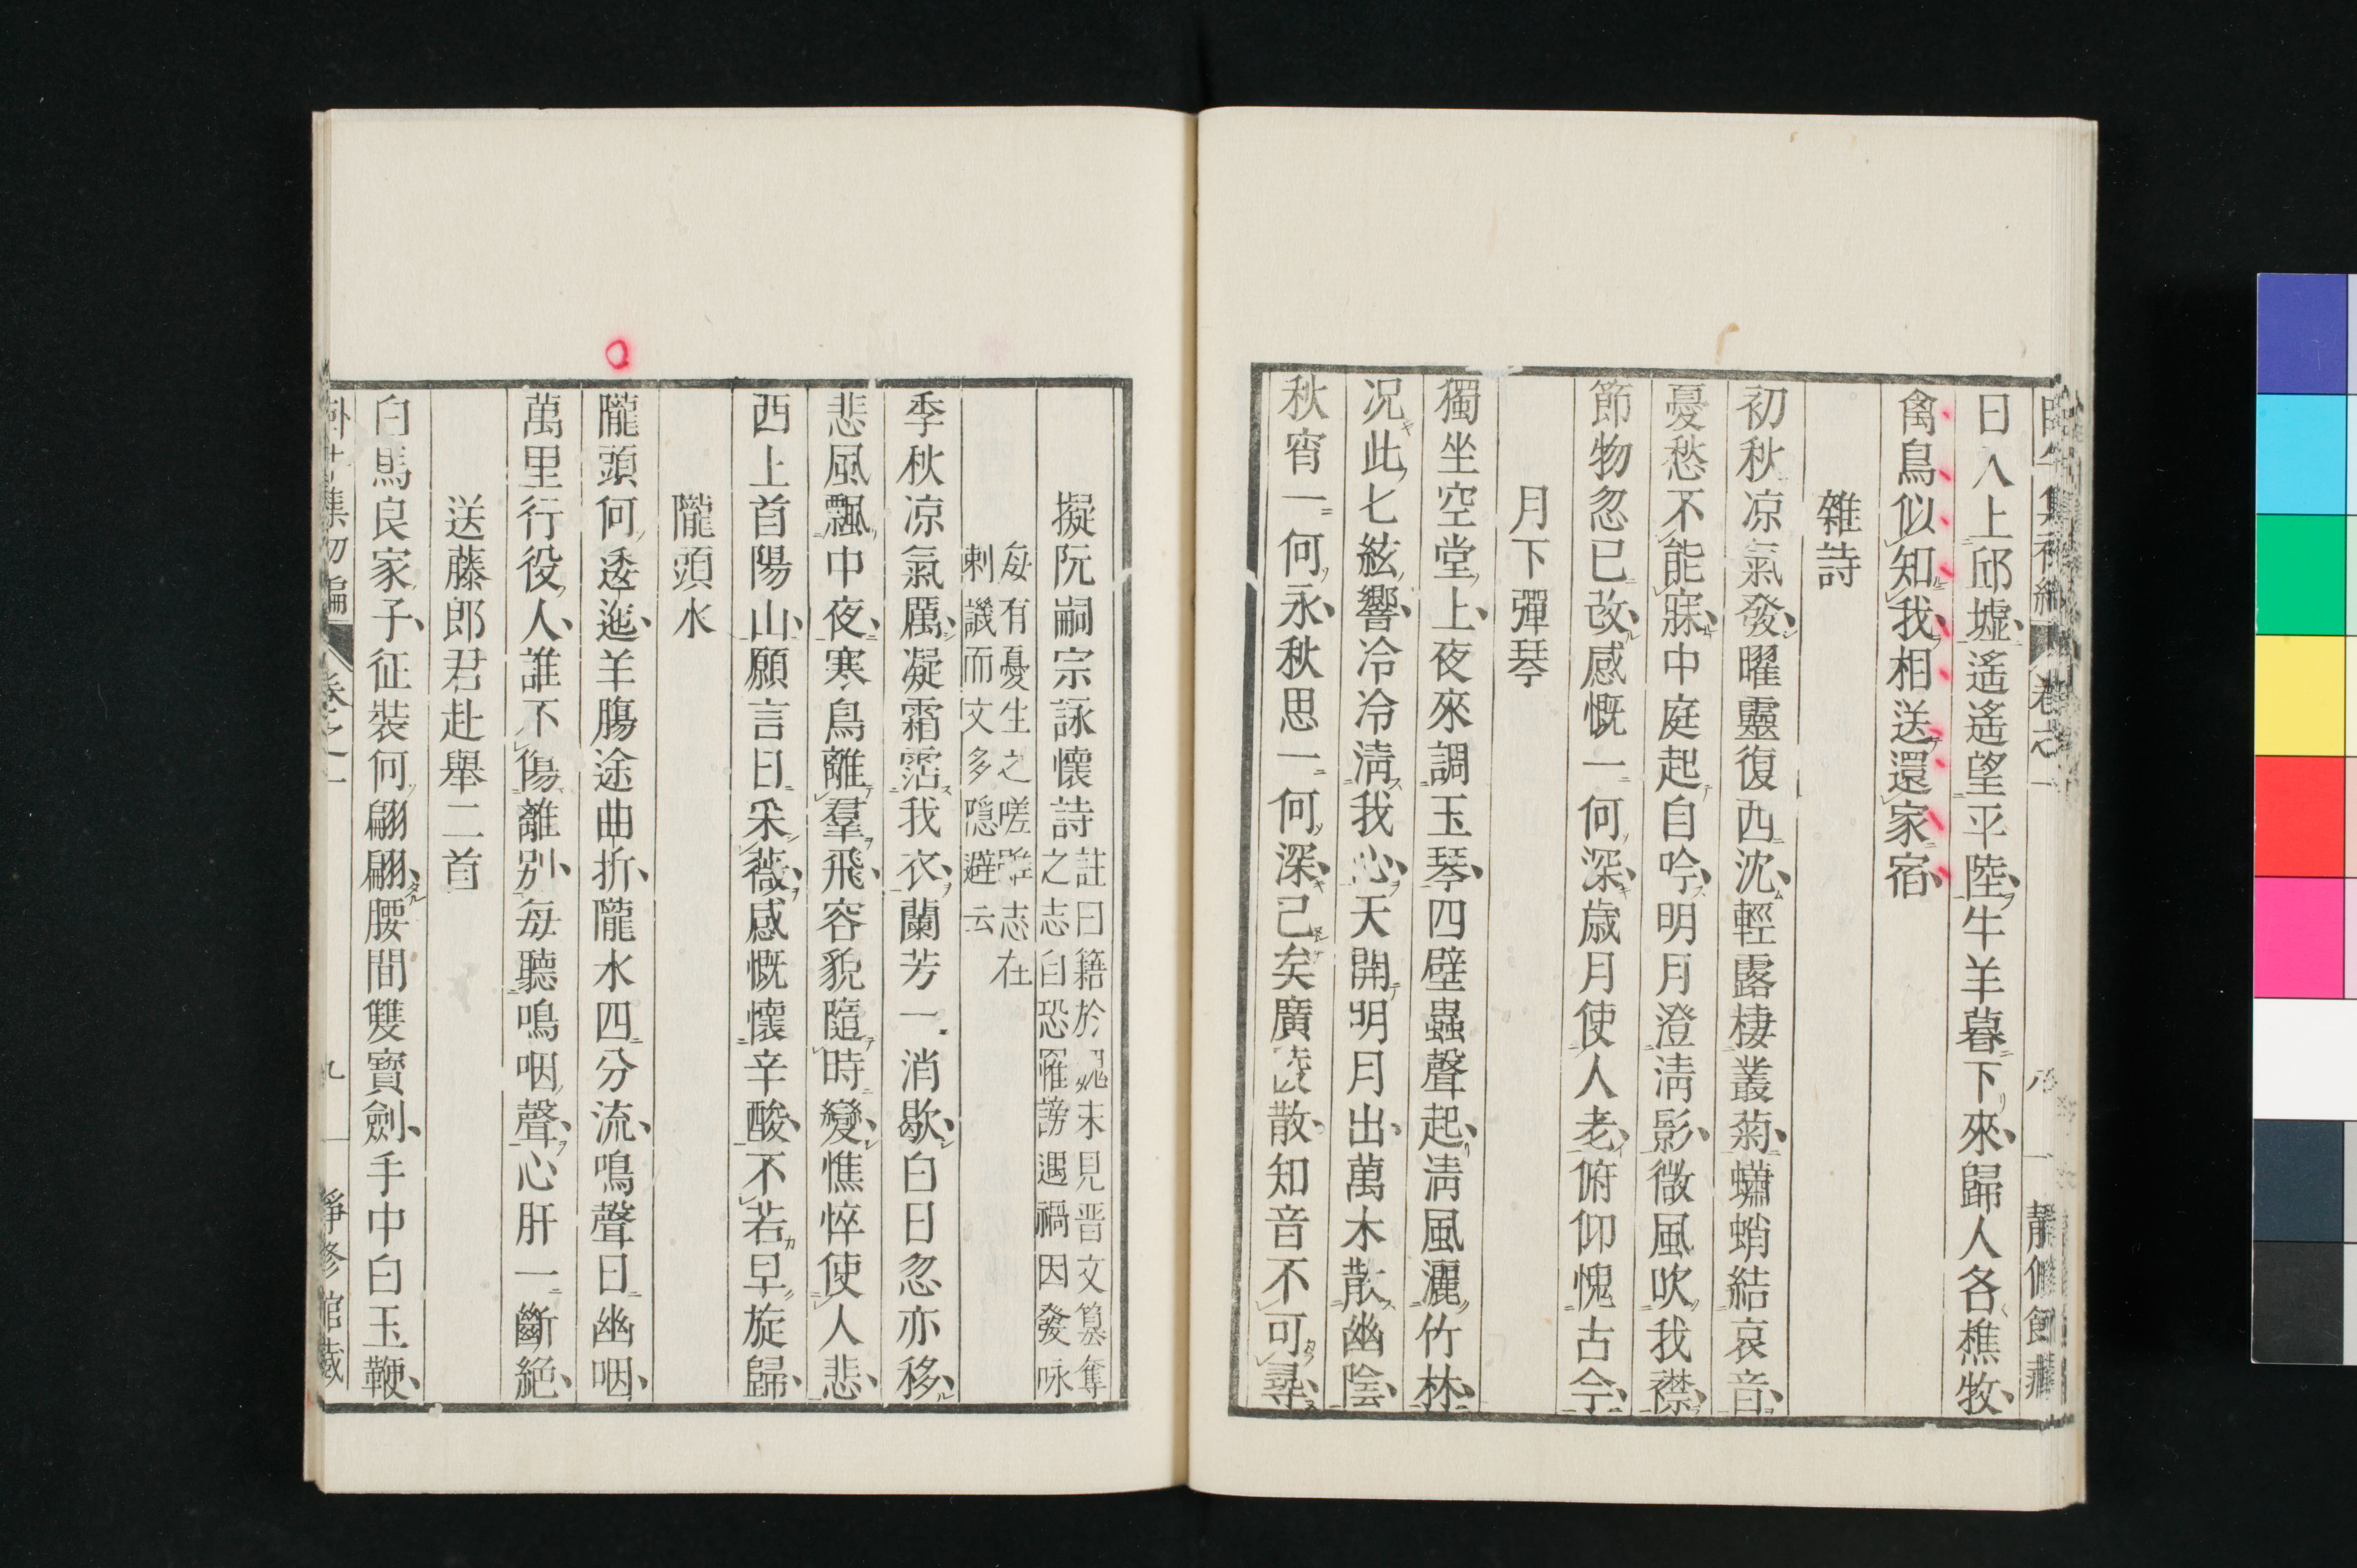 日入上邱墟遙遙望平陸牛羊暮下來歸人各樵牧
禽鳥似知我相送還家宿
雜詩
初秋凉氣發曜靈復西沈輕露棲叢菊蠨蛸結哀音
憂愁不能寐中庭起自吟明月澄淸影微風吹我襟
節物忽已改感慨一何深歳月使人老俯仰愧古今
月下彈琴
獨坐空堂上夜來調玉琴四壁蟲聲起淸風灑竹林
况此七絃響冷冷淸我心天開明月出萬木散幽陰
秋宵一何永秋思一何深已矣廣陵散知音不可尋
擬阮嗣宗詠懷詩
註曰籍於魏末見晋文簒奪
之志自恐罹謗遇禍因發咏
每有憂生之嗟雖志在
刺譏而文多隱避云
季秋凉氣厲凝霜霑我衣蘭芳一消歇白日忽亦移
悲風飄中夜寒鳥離羣飛容貌隨時變憔悴使人悲
西上首陽山願言日采薇感慨懷辛酸不若早旋歸
隴頭水
隴頭何逶迤羊膓途曲折隴水四分流鳴聲日幽咽
萬里行役人誰不傷離別每聽鳴咽聲心肝一斷絶
送藤郎君赴擧二首
白馬良家子征裝何翩翩腰間雙寶劍手中白玉鞭
集初編 卷之一 九 靜修館藏